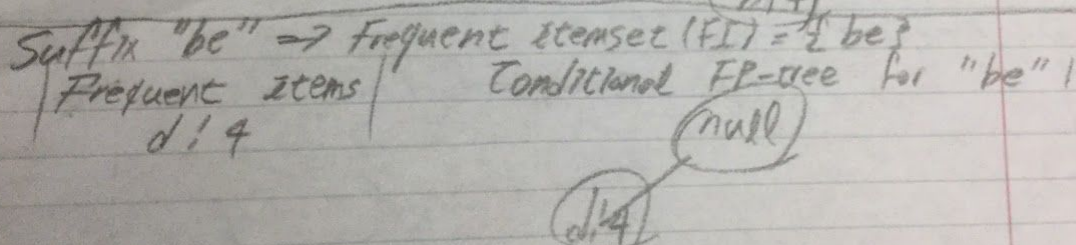 Suffix "be" => Frequent Itemset (FI) = { be }
Frequent Items
Conditional FP-tree for "be"
d:4
null
d:4